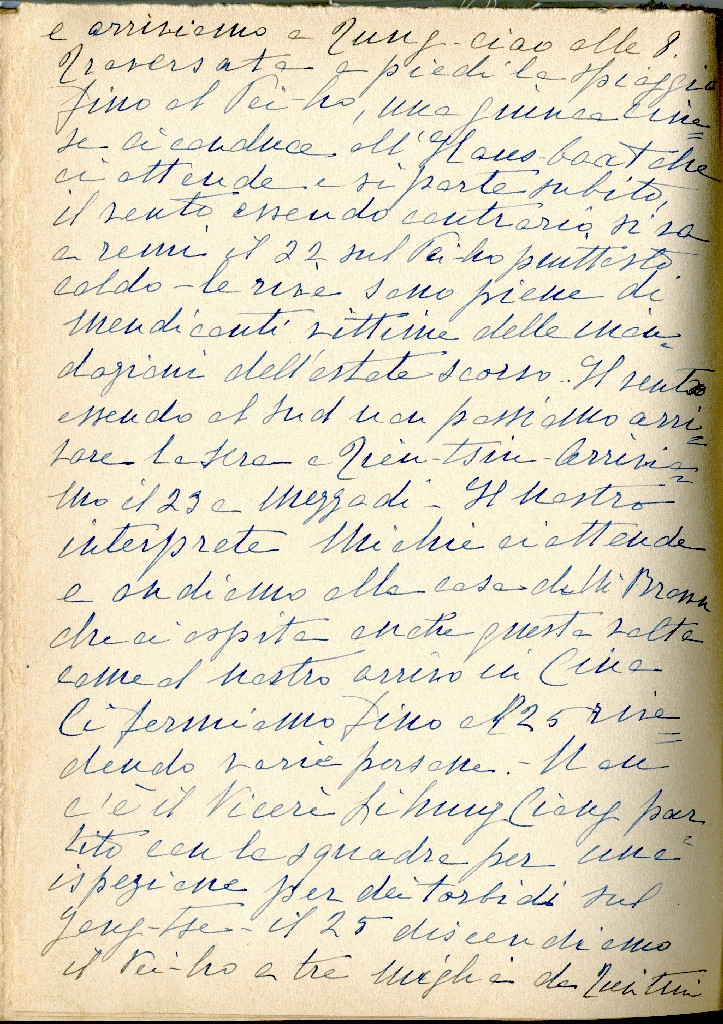 e arriviamo a Tung-ciao alle 8.
Traversata a piedi la spiaggia
fino al Pei-ho, una giunca cine=
se ci conduce all'Haus-boat che
ci attende e si parte subito,
il vento essendo contrario si va
a remi il 22 sul Pei-ho piuttosto
caldo - le rive sono piene di
mendicanti vittime delle inon=
dazioni dell'estate scorso. Il vento
essendo al sud non possiamo arri=
vare la sera a Tien-Tsin - Arrivia=
mo il 23 a mezzadi - Il nostro
interprete Michie ci attende
e andiamo alla casa di Mr Brown
che ci ospita anche questa volta
come al nostro arrivo in Cina
Ci fermiamo fino al 25 rive=
dendo varie persone. - Non
c'è il Vicerè Li hung Ciang par=
tito con la squadra per una
ispezione per dei torbidi sul
Yang-tse - il 25 discendiamo
il Pei-ho a tre miglia da Tientsin